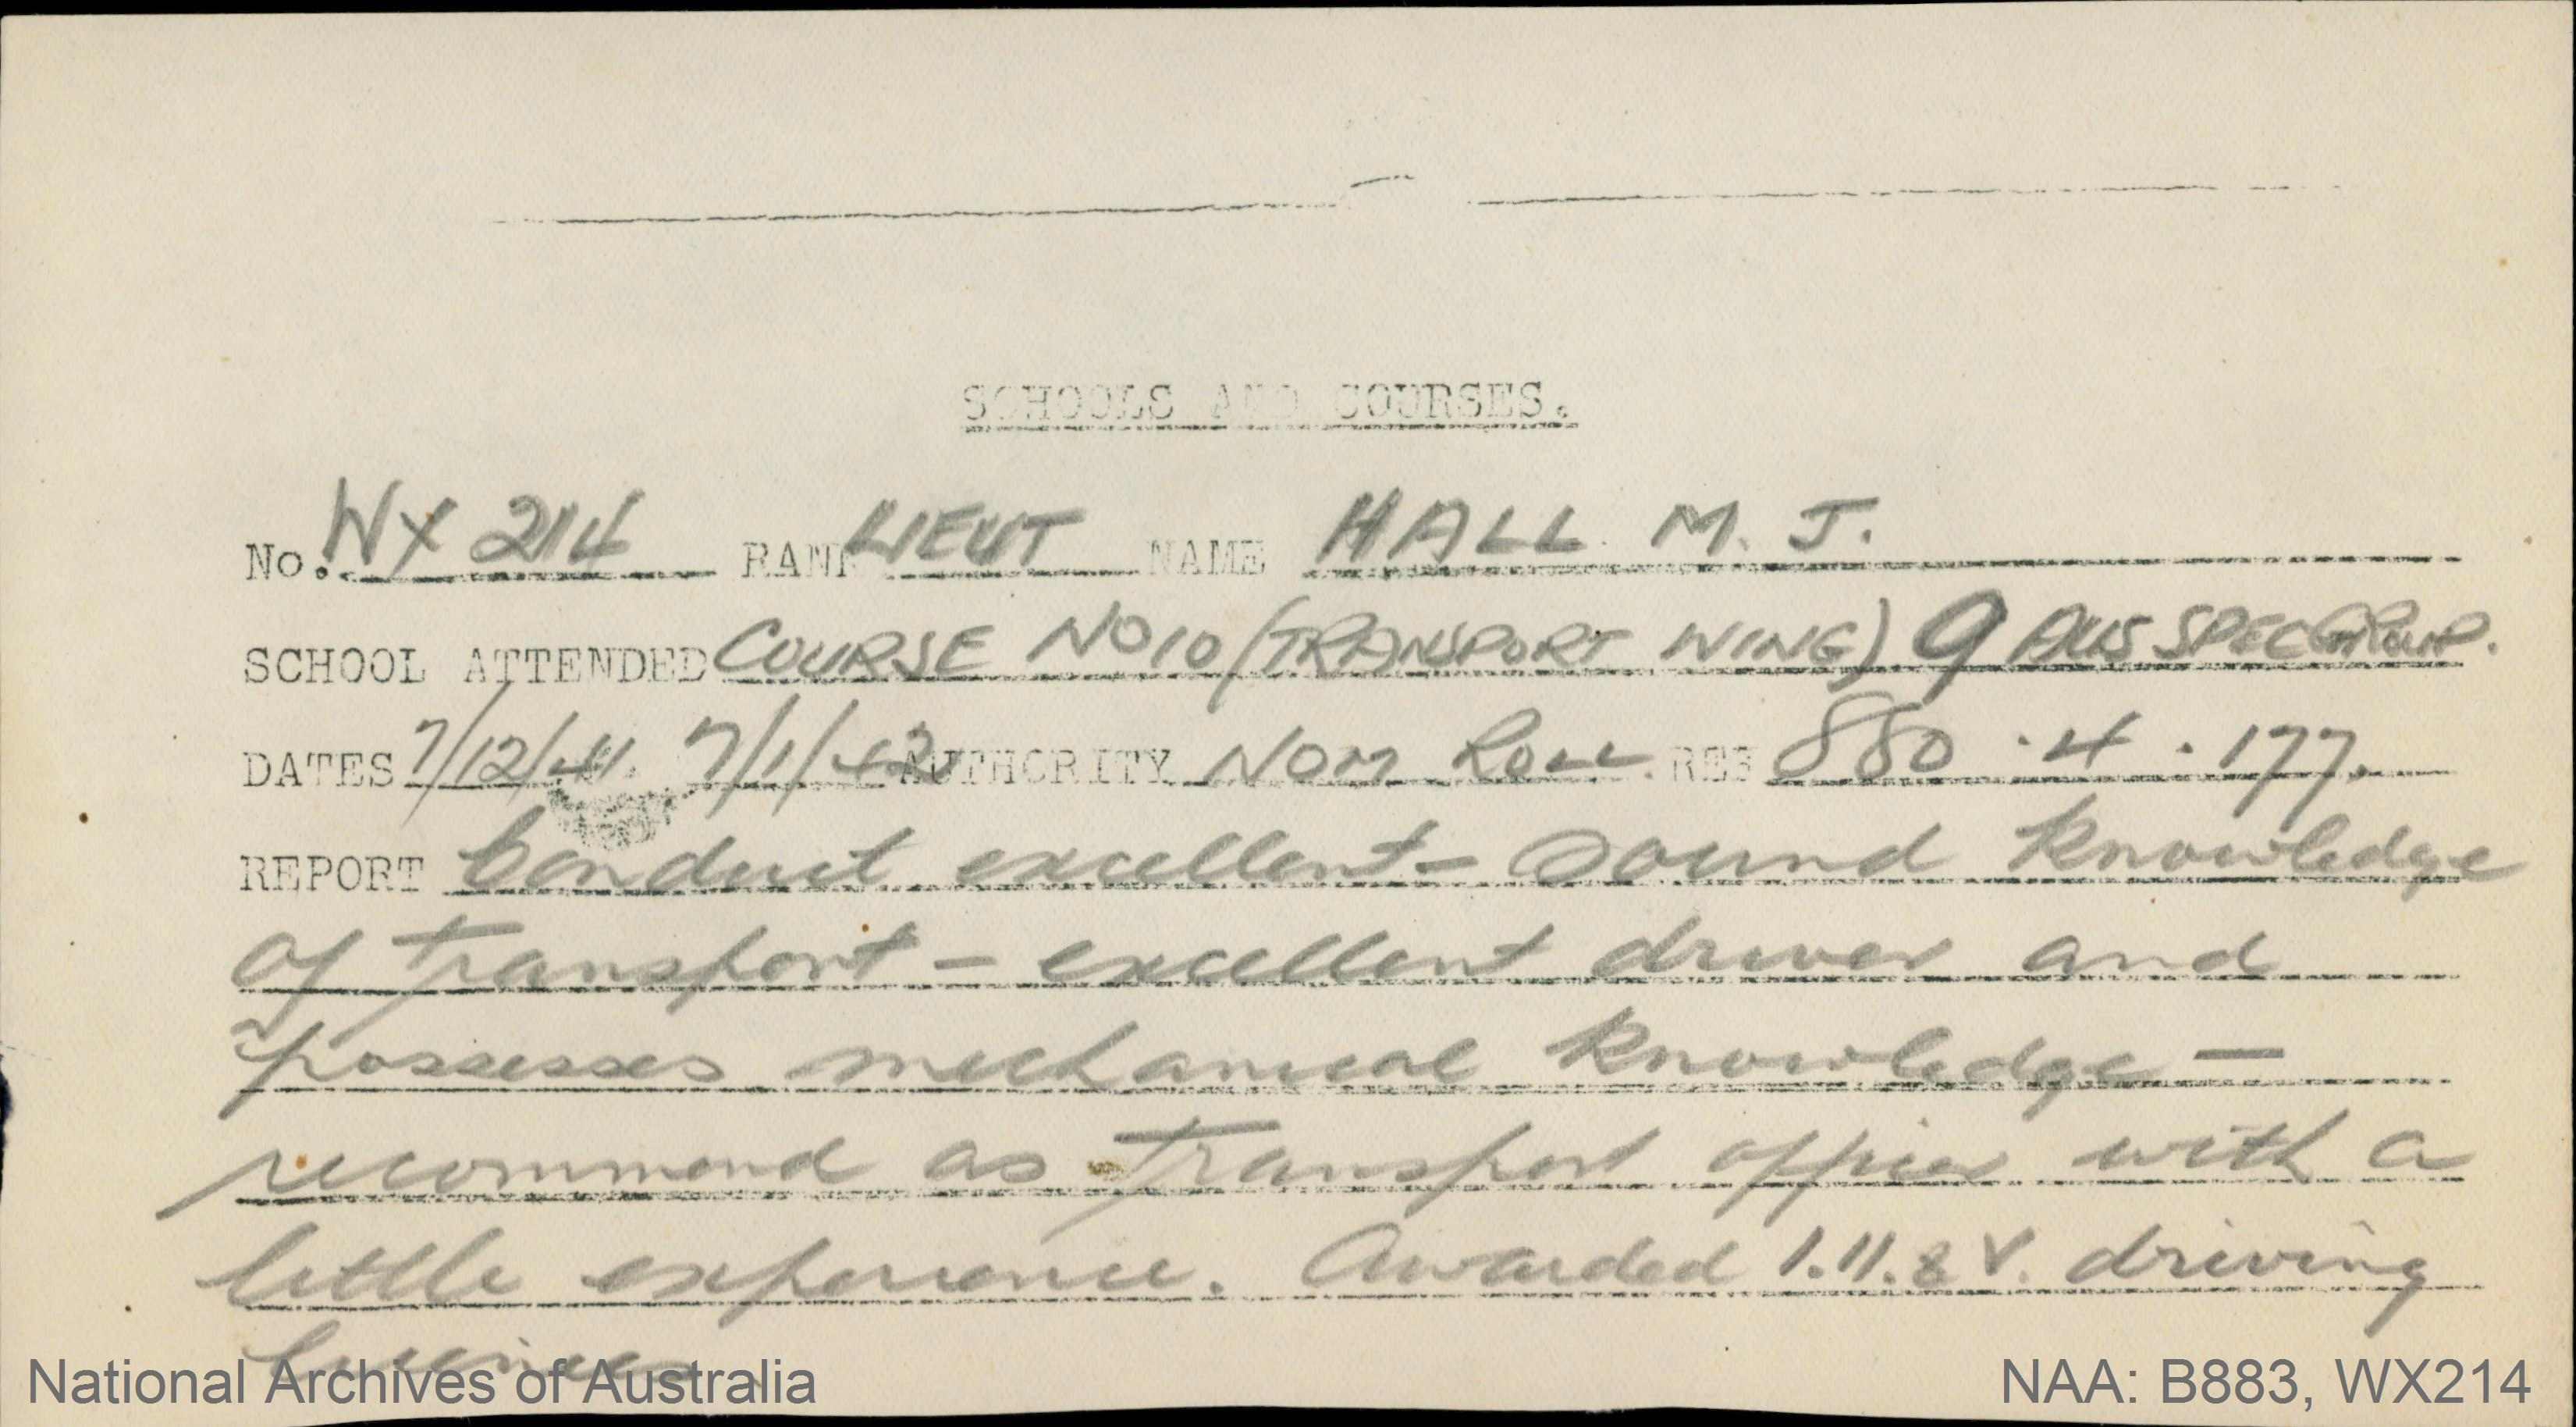 SCHOOLS AND COURSES.
No. WX 214 RANK LIEUT NAME HALL M. J.
SCHOOL ATTENDED COURSE NO 10 (TRANSPORT WING) 9 AUS SPEC GROUP.
DATES 7/12/41. 7/1/42 AUTHORITY NOM ROLL REF 880.4.177.
REPORT Conduct excellent - Sound knowledge
of transport - excellent driver and
possesses mechanical knowledge -
recommend as transport officer with a
little experience. Awarded 1.11.& V. driving
licences
National Archives of Australia
NAA: B883, WX214